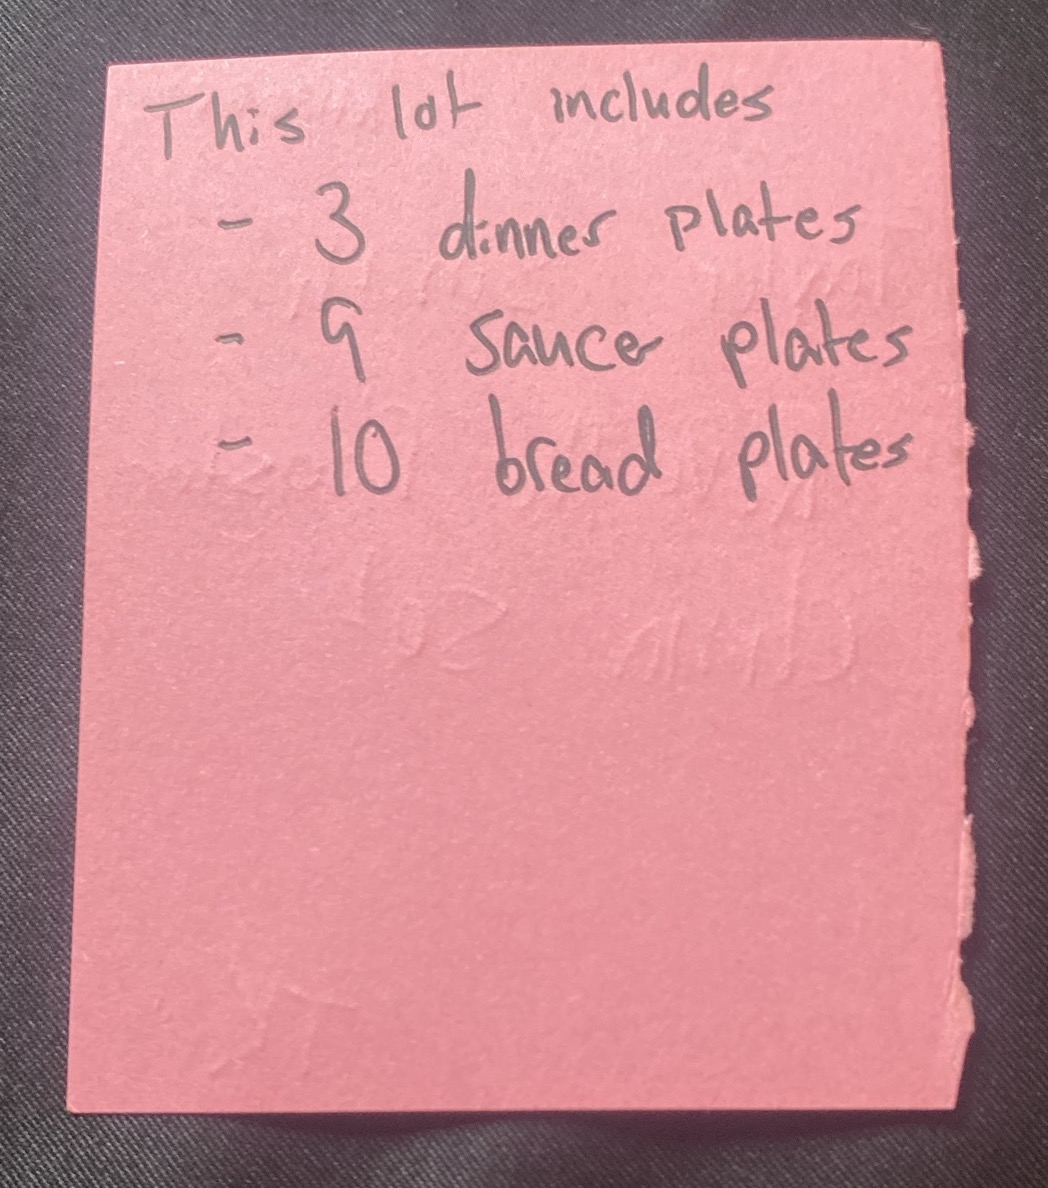 This lot includes
- 3 dinner plates
- 9 saucer plates
- 10 bread plates